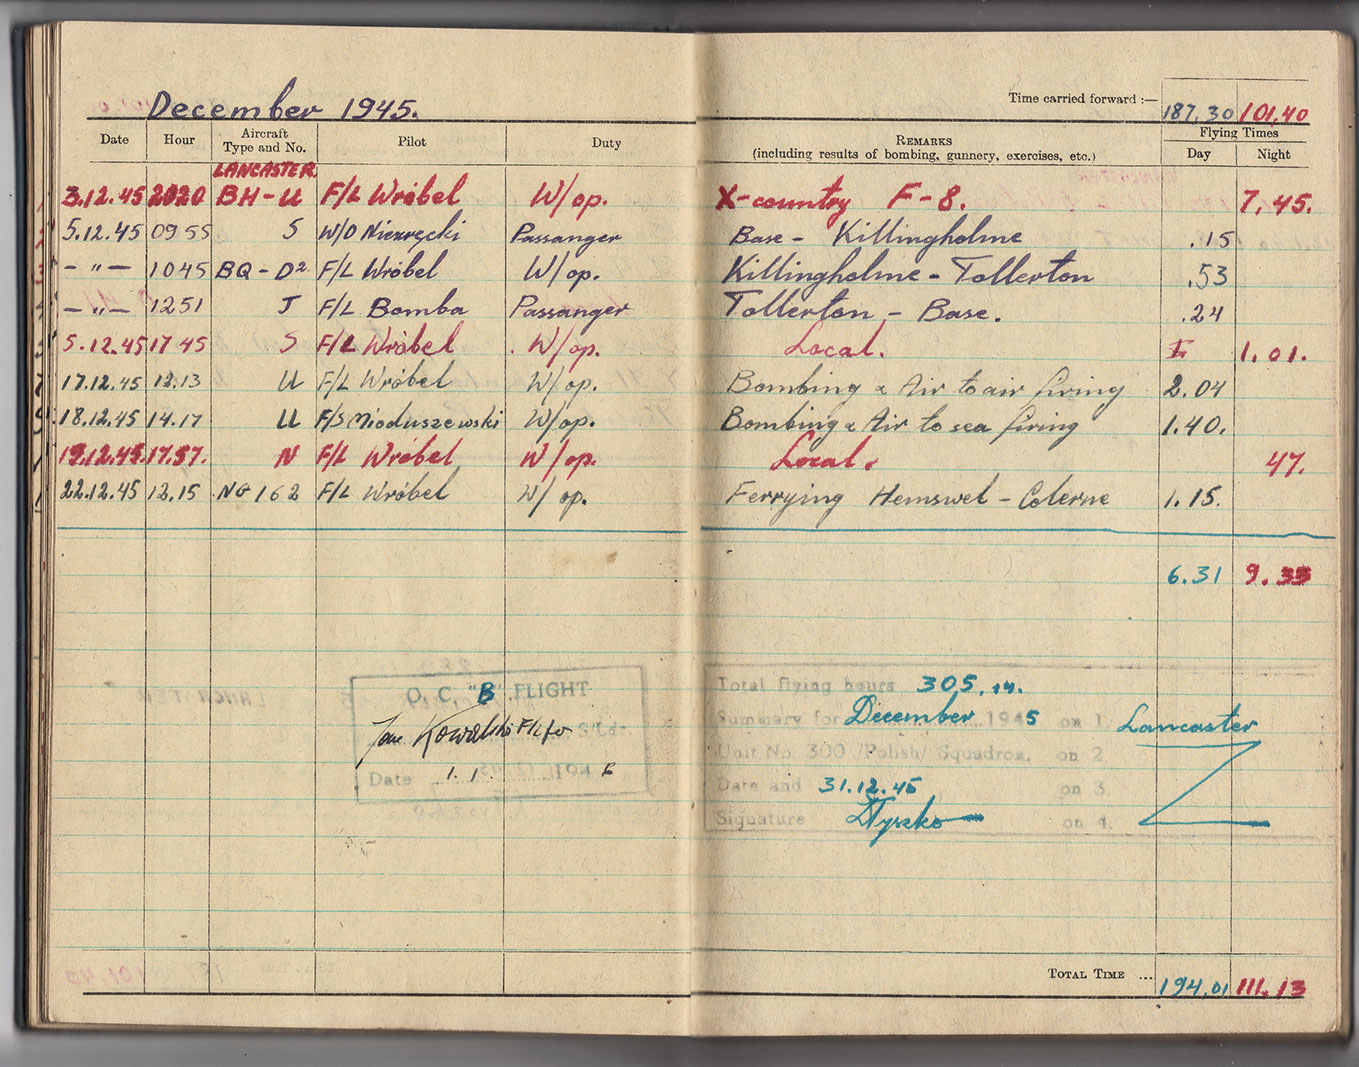 December 1945.
Time carried forward :— 187.30 101.40
Date Hour Aircraft Type and No. Pilot Duty REMARKS (including results of bombing, gunnery, exercises, etc.) Flying Times Day Night
LANCASTER
3.12.45 2020 BH-U F/L Wróbel W/op. X-country F-8. 7.45.
5.12.45 0955 S W/O Passanger Base - Killingholme .15
- " - 1045 BQ-D2 F/L Wróbel W/op. Killingholme - Tollerton .53
- " - 1251 J F/L Bomba Passanger Tollerton - Base. .24
5.12.45 1745 S F/L Wróbel W/op. Local. 1.01.
17.12.45 12.13 U F/L Wróbel W/op. Bombing & Air to air firing 2.04
18.12.45 14.17 U F/S Mioduszewski W/op. Bombing & Air to sea firing 1.40.
19.12.45. 17.57. N F/L Wróbel W/op. Local. 47.
22.12.45 12.15 NG 162 F/L Wróbel W/op. Ferrying Hemswel - Colerne 1.15.
6.31 9.33
O. C. "B" FLIGHT
Jan Kowalski F/Lt S/Ldr.
Date 1. 1. 194
Total flying hours 305.14.
Summary for December 1945 on 1. Lancaster
Unit No. 300 /Polish/ Squadron. on 2
Date and 31.12.45 on 3.
Signature on 4.
TOTAL TIME ... 194.01 111.13